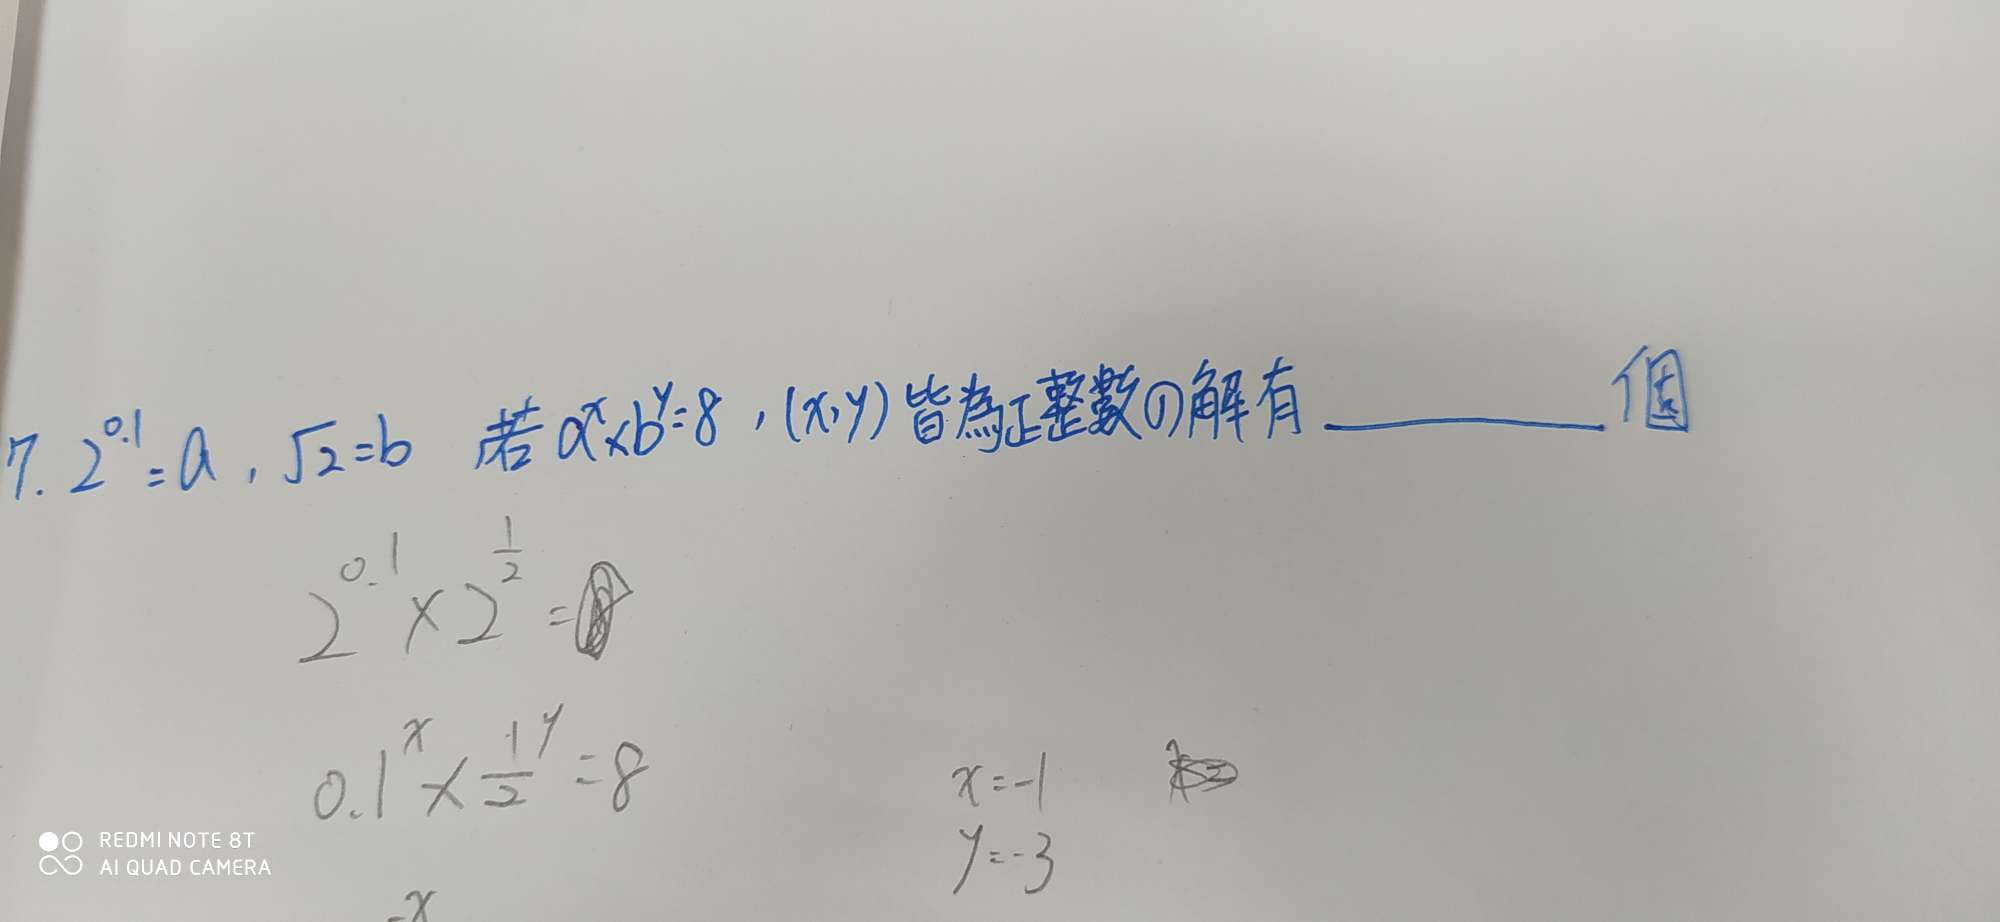 7. 2^0.1 = a , √2 = b 若 a^x × b^y = 8 , (x,y) 皆為正整數の解有 ______ 個
2^0.1 × 2^1/2 =
0.1^x × 1/2^y = 8
x = -1
y = -3
-x
REDMI NOTE 8T
AI QUAD CAMERA